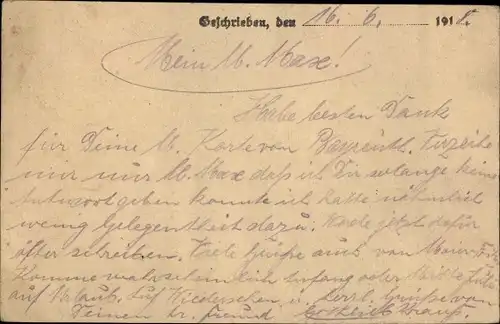 Geschrieben, den 16. 6. 1918.
Mein lb. Max!
Habe besten Dank
für Deine lb. Karte von Bayreuth. Verzeihe
mir nur lb. Max daß ich Dir solange keine
Antwort geben konnte ich hatte nähmlich
wenig Gelegenheit dazu. Werde jetzt dafür
öfter schreiben. Viele Grüße auch von Maier
Komme wahrscheinlich Anfang oder Mitte Juli
auf Urlaub. Auf Wiedersehen u. herzl. Grüße von
Deinem tr. Freund